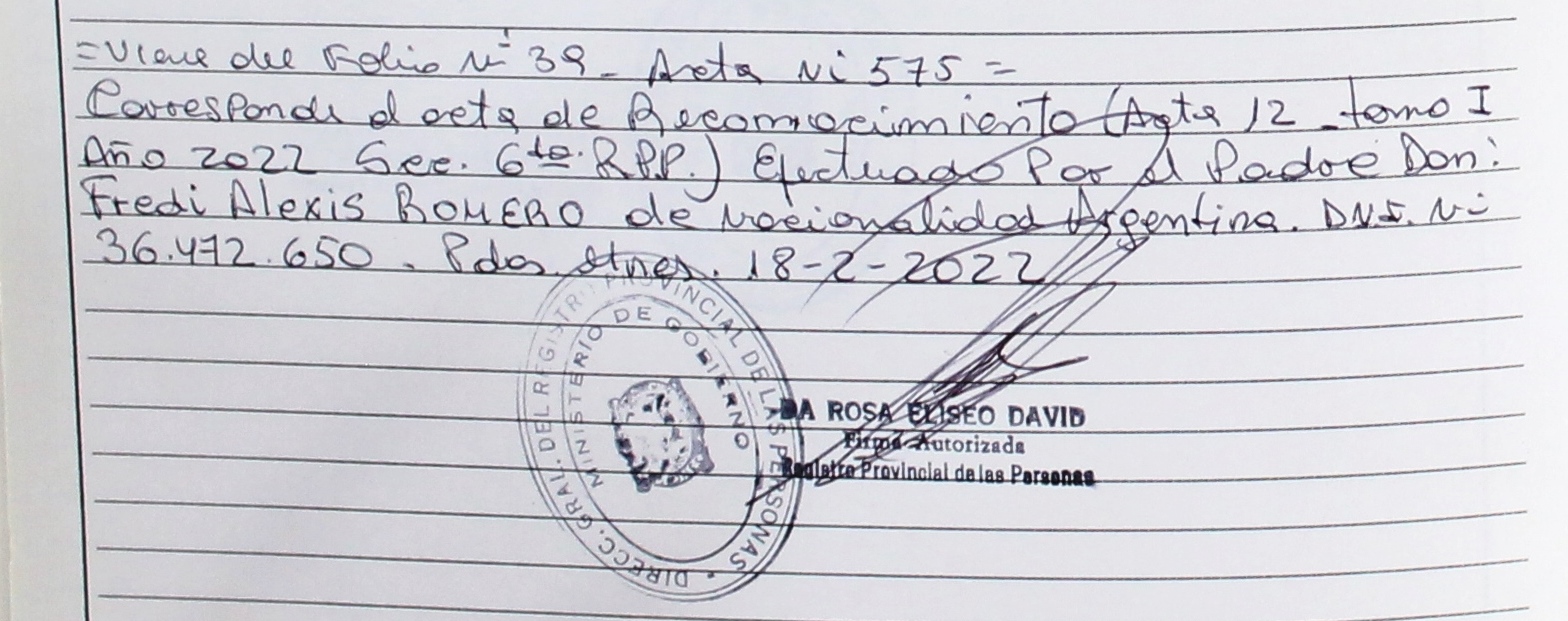 =Viene del Folio Nº 39_ Acta Nº 575=
Corresponde al acta de Reconocimiento (Acta 12_ tomo I
Año 2022 Sec. 6ta. RPP.) Efectuado Por el Padre Don:
Fredi Alexis ROMERO de nacionalidad Argentina. DNI. Nº
36.472.650. Pdas. Mnes. 18-2-2022
DIRECC. GRAL. DEL REGISTRO PROVINCIAL DE LAS PERSONAS
MINISTERIO DE GOBIERNO
DA ROSA ELISEO DAVID
Firma Autorizada
Registro Provincial de las Personas